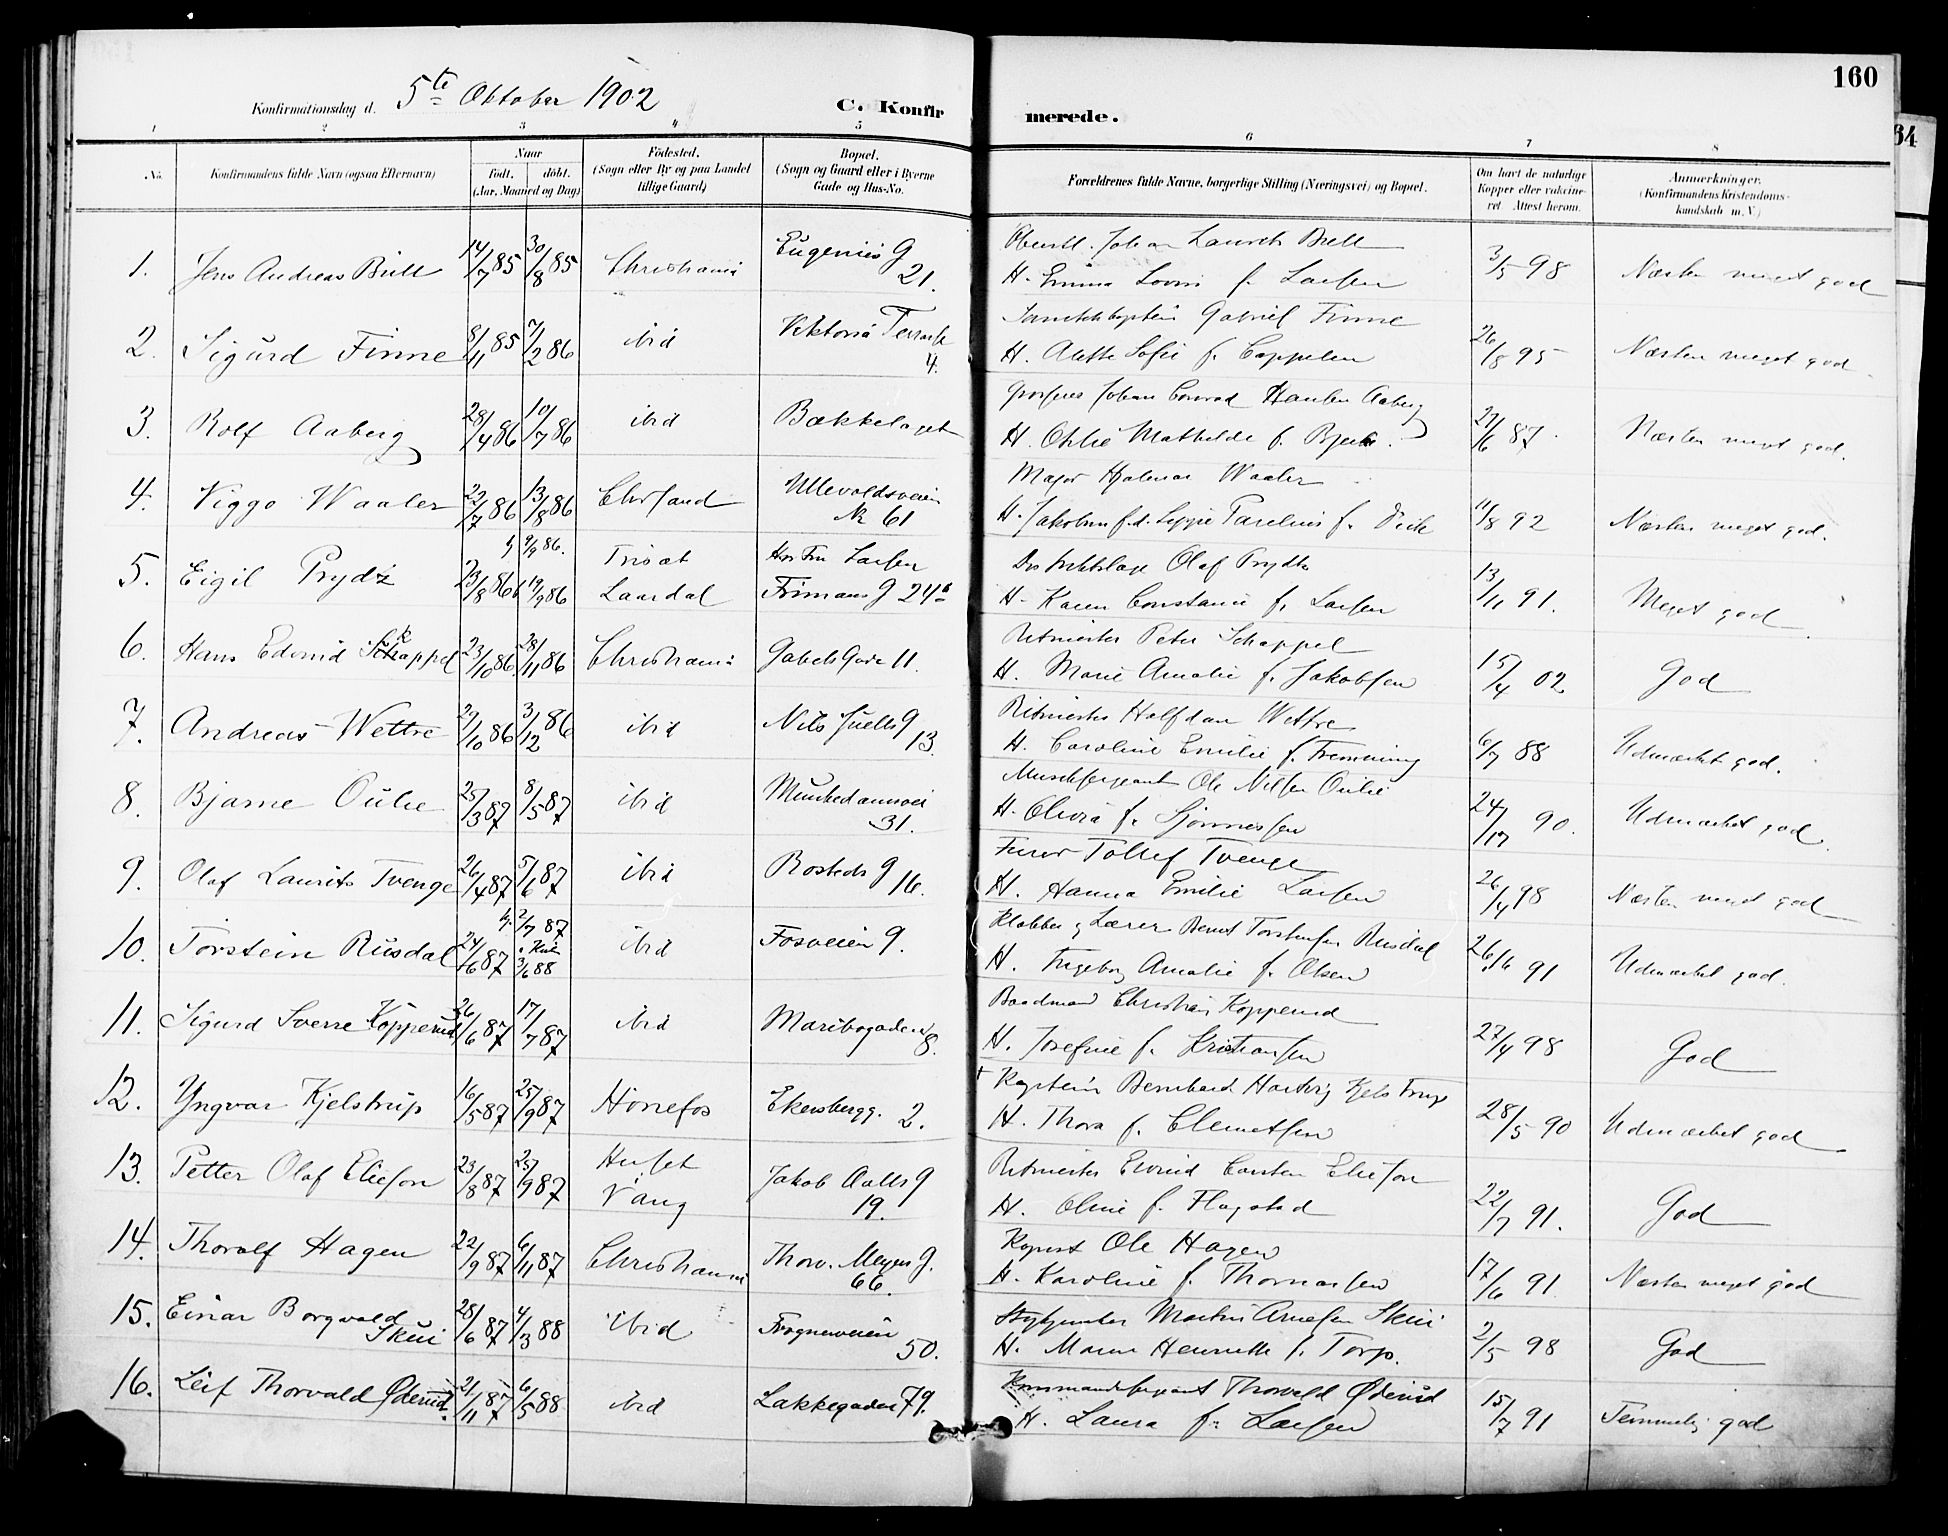 160
64
Konfirmationsdag d. 5te Oktober 1902
C. Konfir merede.
1 2 3 4 5 6 7 8
No.
Konfirmandens fulde Navn (ogsaa Efternavn)
Naar
født. døbt.
(Aar, Maaned og Dag)
Fødested.
(Sogn eller By og paa Landet
tillige Gaard)
Bopæl.
(Sogn og Gaard eller i Byerne
Gade og Hus-No.
Forældrenes fulde Navne, borgerlige Stilling (Næringsvei) og Bopæl.
Om havt de naturlige
Kopper eller vakcine-
ret Attest herom.
Anmærkninger.
(Konfirmandens Kristendoms-
kundskab m. V.)
1. Jens Andreas Bull 14/7 85 30/8 85 Christiania Eugenies G 21.
Oberstl. Johan Lauritz Bull
H. Emma Lovise f. Larsen 3/5 98 Næsten meget god
2. Sigurd Finne 8/11 85 7/2 86 ibid Viktoria Terrasse 4.
Gabriel Finne
H. Alette Sofie f. Cappelen 26/8 95 Næsten meget god
3. Rolf Aaberg 28/4 86 10/7 86 ibid Bækkelaget
Grosseres Johan Conrad Hansen Aaberg
H. Othlie Mathilde f. 27/6 87. Næsten meget god.
4. Viggo Waaler 22/7 86 13/8 86 Chrsand Ullevoldsveien No 61
Major Hjalmar Waaler
H. Jakobine f. 11/8 92 Næsten meget god.
5. Eigil Prydz 23/8 86 hj 9/9 86. 19/9 86 Trisæt Laardal Hos Fru Larsen
Frimans G 24b
Distriktslæge Olaf Prydtz
H. Karen Constance f. Larsen 13/11 91. Meget god
6. Hans Edvind Skappel 23/10 86. 28/11 86 Christiania Gabels Gade 11.
Ritmester Peter Schappel
H. Marie Amalie f. Jakobsen 15/4 02 God
7. Andreas Wettre 29/10 86 3/12 86 ibid Nils Juells G 13.
Ritmester Halfdan Wettre
H. Caroline Emilie f. Fremming 6/7 88 Udmærket god.
8. Bjarne Oulie 25/3 87 8/5 87 ibid Munkedamsvei 31.
Musiksergeant Ole Nilsen Oulie
H. Olivia f. Sjønnessen 24/12 90. Udmærket god.
9. Olaf Laurits Tvenge 26/4 87 5/6 87 ibid Rosteds G 16.
Furer Tollef Tvenge
H. Hanna Emilie Larsen 26/4 98 Næsten meget god
10. Torstein Rusdal 24/6 87 hj. 2/7 87 i Kirk 3/6 88 ibid Fosveien 9.
Klokker og Lærer Bernt Torstensen Rusdal
H. Ingeborg Amalie f. Olsen 26/6 91 Udmærket god.
11. Sigurd Sverre Kopperud 26/6 87 17/7 87 ibid Maribogaden 8.
Baadmand Christian Kopperud
H. Josefine f. Kristiansen 27/4 98 God
12. Yngvar Kjelstrup 16/5 87 25/9 87 Hønefos Ekersbergg. 2.
† Kaptein Bernhard Hartvig Kjelstrup
H. Thora f. Clemetsen 28/5 90 Udmærket god
13. Petter Olaf Elieson 23/8 87 25/9 87 Huset Vang Jakob Aalls G 19.
Ritmester Eivind Carsten Elieson
H. Oline f. Flagstad 22/7 91. God
14. Thoralf Hagen 22/9 87 6/11 87 Christiania Thorv. Meyers G. 66.
Ole Hagen
H. Karoline f. Thomassen 17/6 91 Næsten meget god
15. Einar Borgvald Skui 28/6 87 4/3 88 ibid Frognerveien 50.
Stykjunker Martin Arnesen Skui
H. Maren Henriette f. Torp. 2/5 98 God
16. Leif Thorvald Øderud. 21/11 87 6/5 88 ibid Lakkegaden 79.
Kommandersergeant Thorvald Øderud
H. Laura f. Larsen 15/7 91 Temmelig god